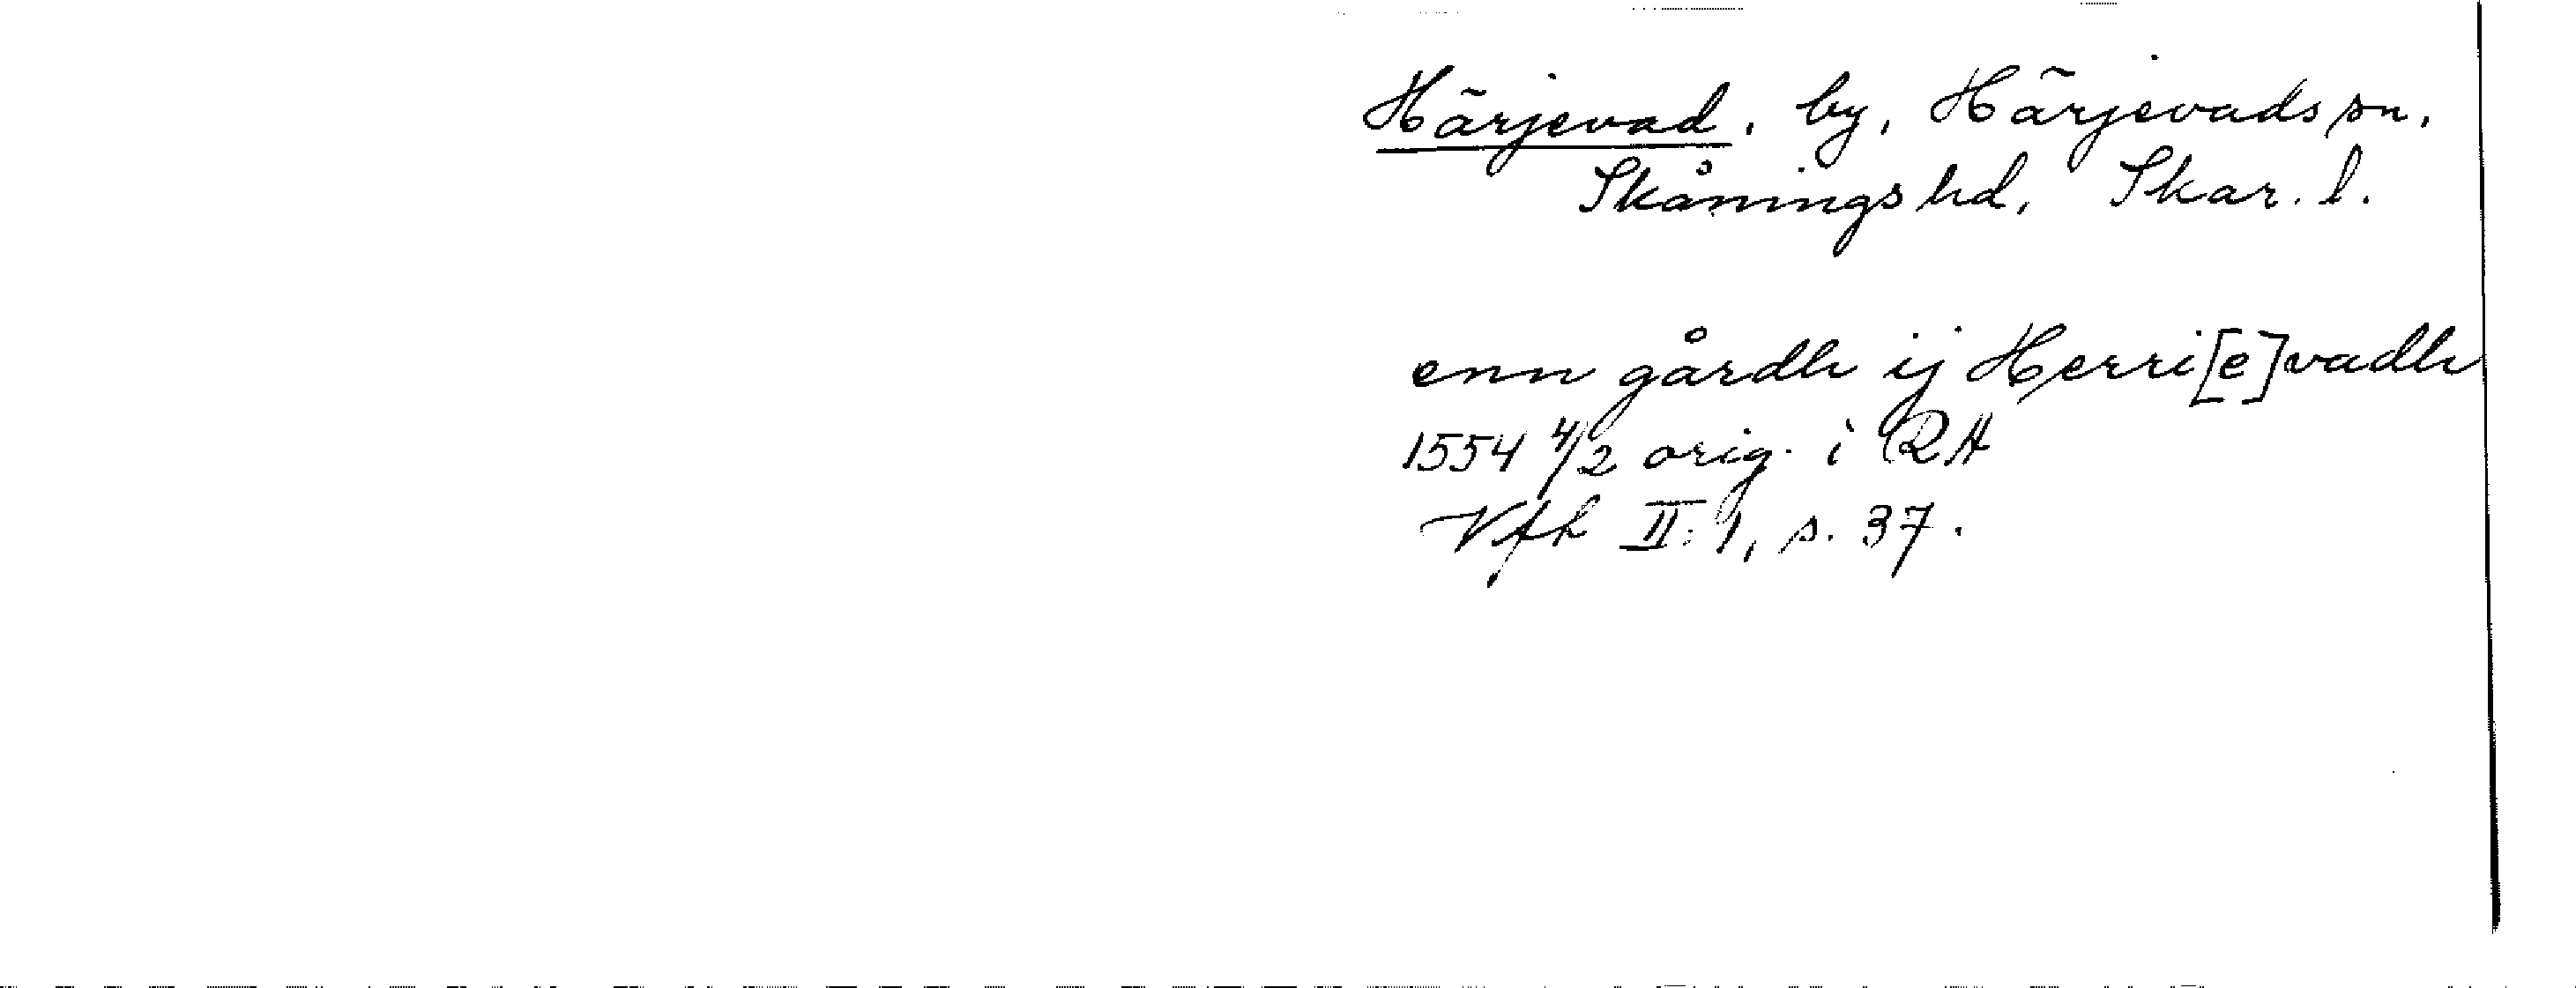 Härjevad, by, Härjevads sn,
Skånings hd, Skar. l.
enn gårdh ij Herri[e]vadh
1554 4/2 orig. i RA
Vfh II: 1, s. 37.